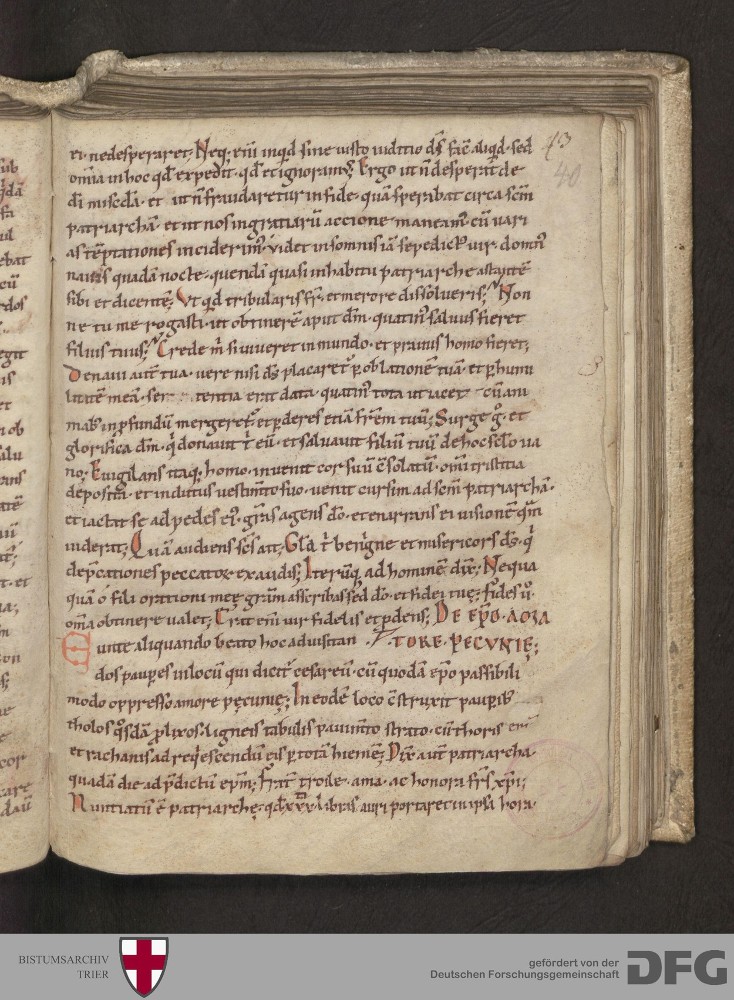 ei. ne desperaret; Neq; enī inqđ sine iusto iuditio dš facˉ aliqđ. sed
om̄ia in hoc qđ expedit. qđ et ignoram᷒; Ergo ut n̄ desperaret de
di miscđa. et ut n̄ fraudaretur in fide. quā sperabat circa scm̄
patriarchā. et ut nos ingratiarū accione maneam᷒. cū uari
as tēptationes inciderim᷒. videt in somnis iā sepedict᷒ vir. domin᷒
nauis quadā nocte. quendā quasi inhabitu patriarche astantē
sibi et dicentē; Vt qđ tribularis fr̄. et merore dissolueris; Non
ne tu me rogasti. ut obtinerē aput dm̄. quatin᷒ saluus fieret
filius tuus; Crede m̄ si uiueret in mundo. et prauus homo fieret;
Denauī aut̄ tua. vere nisi dš placaret᷒ ꝑ oblationē tuā. et ꝑ humi
litatē meā. sententia erat data. quatin᷒ tota ut iacet cū ani
mab᷒ in ꝓfundū mergeret᷒. et ꝑderes etiā fr̄em tuū; Surge ḡ. et
glorifica dm̄. q̄ donauit t̄ eū. et saluauit filiū tuū de hoc sclo ua
no; Euigilans itaq; homo. inuenit cor suū c̄solatū. om̄i tristitia
deposita. et indutus vestimto suo. uenit cursim ad scm̄ patriarchā.
et iactat se ad pedes ei᷒. gras agens do. et enarrans ei uisionē quā
uiderat; Quā audiens scs ait; Gla t̄ benigne et misericors dš. q̄
dep̄cationes peccatoꝝ exaudis; Iterūq; ad hominē dix̄; Nequa
quā o fili orationi meę gram ascribas sed do. et fidei tuę; Fides u᷒.
om̄a obtinere ualet; Erat eni uir fidelis et ꝑdens; DE EP̄O. AOZA
Eunte aliquando beato hoc aduisitan TORE. PECVNIĘ;
dos pauꝑes in locū qui dicit᷒ cesareū. cū quodā epo passibili
modo oppresso amore pęcunię; In eodē loco c̄struxit pauꝑib᷒
tholos q᷒sdā ꝓlixos. ligneis tabulis pauimto strato. cū thoris
et rachanis ad req̄escendū eis ꝑ totā hiemē; Dix̄ aut̄ patriarcha.
quadā die ad p̄dictū epm̄; Frat᷒ troile. ama. ac honora fr̄s xp̄i;
Nuntiatū ē patriarchę. qđ xxx libras auri portaret in ipsa hora.
BISTUMSARCHIV
TRIER
gefördert von der
Deutschen Forschungsgemeinschaft
DFG